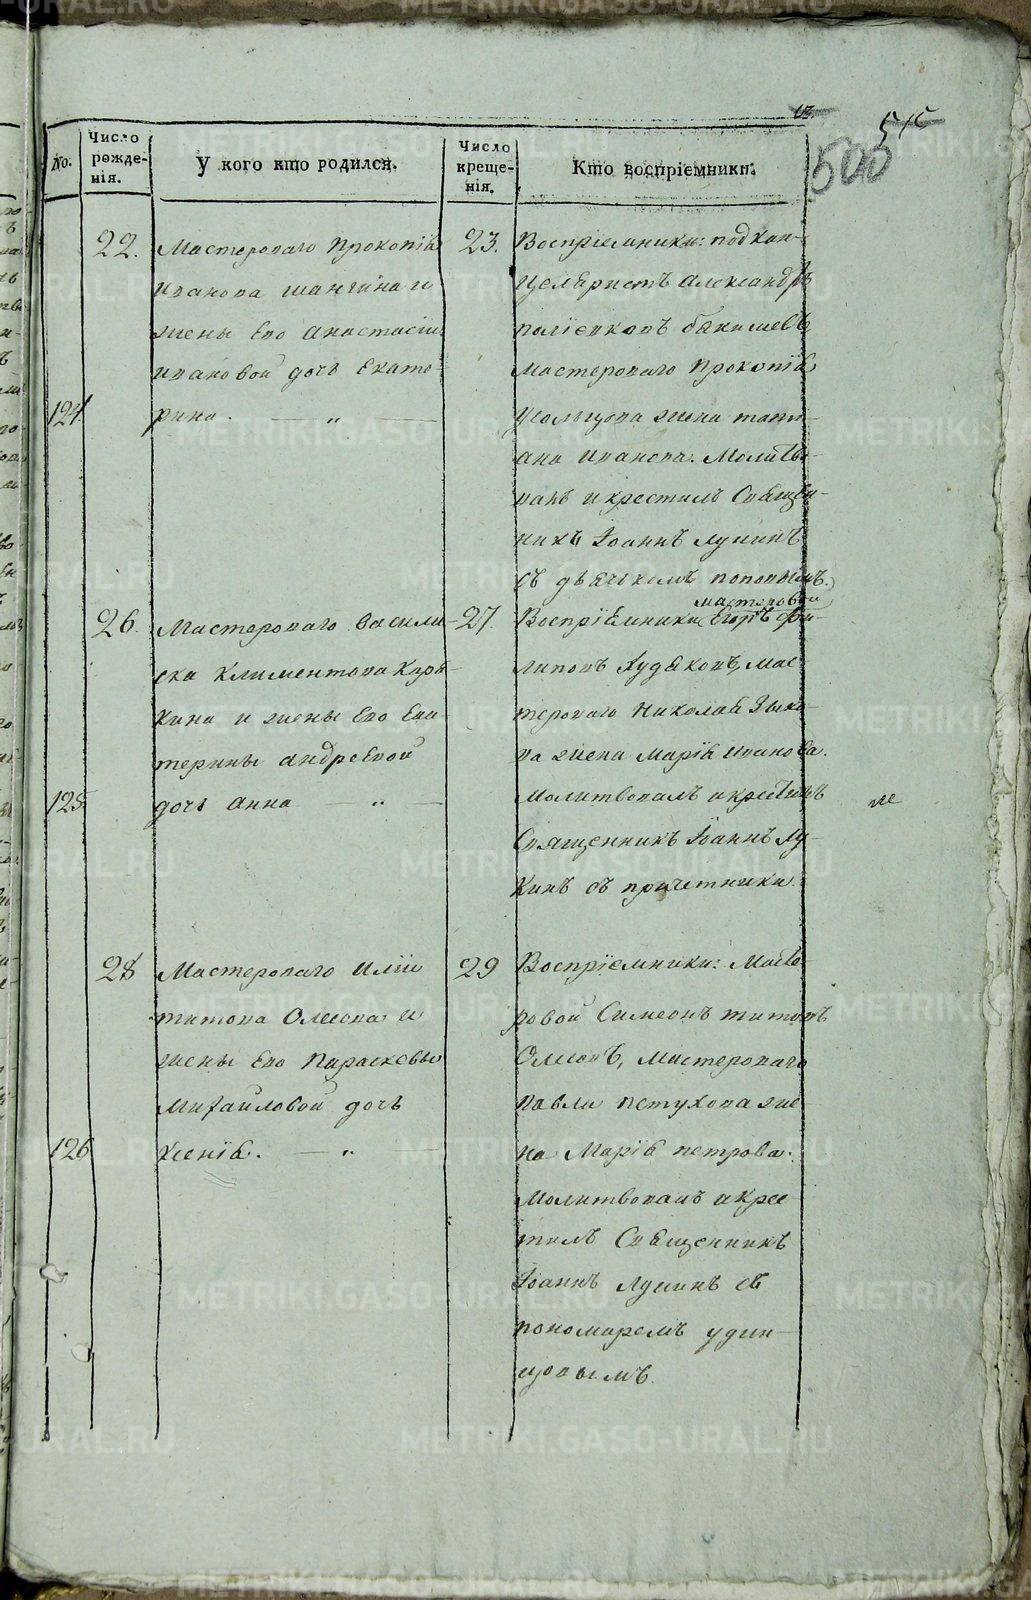 515
500
No.
Число рожде-нія.
У кого кто родился.
Число креще-нія.
Кто воспріемники.
22.
Мастероваго Прокопія
Иванова Шангина и
жены Его Анастасіи
Ивановой дочь Екате-
124
рина. — „ —
23.
Воспріемники: подкан-
целяристъ Александръ
мастероваго Прокопія
жена Тать-
яна Иванова. Молитво-
валъ и крестилъ Священ-
никъ Іоаннъ Лукинъ
съ дьячкомъ Поповымъ.
26.
Мастероваго Васили-
ска Климентова Каря-
кина и жены Его Ека-
терины Андреевой
125
дочь Анна — „ —
27.
мастеровой
Воспріемники Егоръ Фи-
липовъ Худяковъ, мас-
тероваго Николая Зыко-
ва жена Марія Иванова.
Молитвовалъ и крестилъ
Священникъ Іоаннъ Лу-
кинъ съ причетники.
28
Мастероваго Иліи
Титова Олесова и
жены Его Параскевы
Михайловой дочь
126
Ксенія. — „ —
29
Воспріемники: Масте-
ровой Симеонъ Титовъ
Олесовъ, мастероваго
Павла Петухова же-
на Марія Петрова.
Молитвовалъ и крес-
тилъ Священникъ
Іоаннъ Лукинъ съ
пономаремъ Удин-
цовымъ.
METRIKI.GASO-URAL.RU